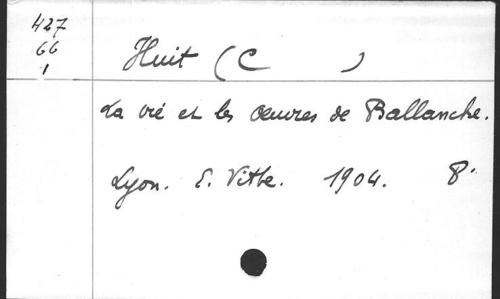 427
66
1
Huit (C )
La vie et les Œuvres de Ballanche.
Lyon. E. Vitte. 1904. 8°